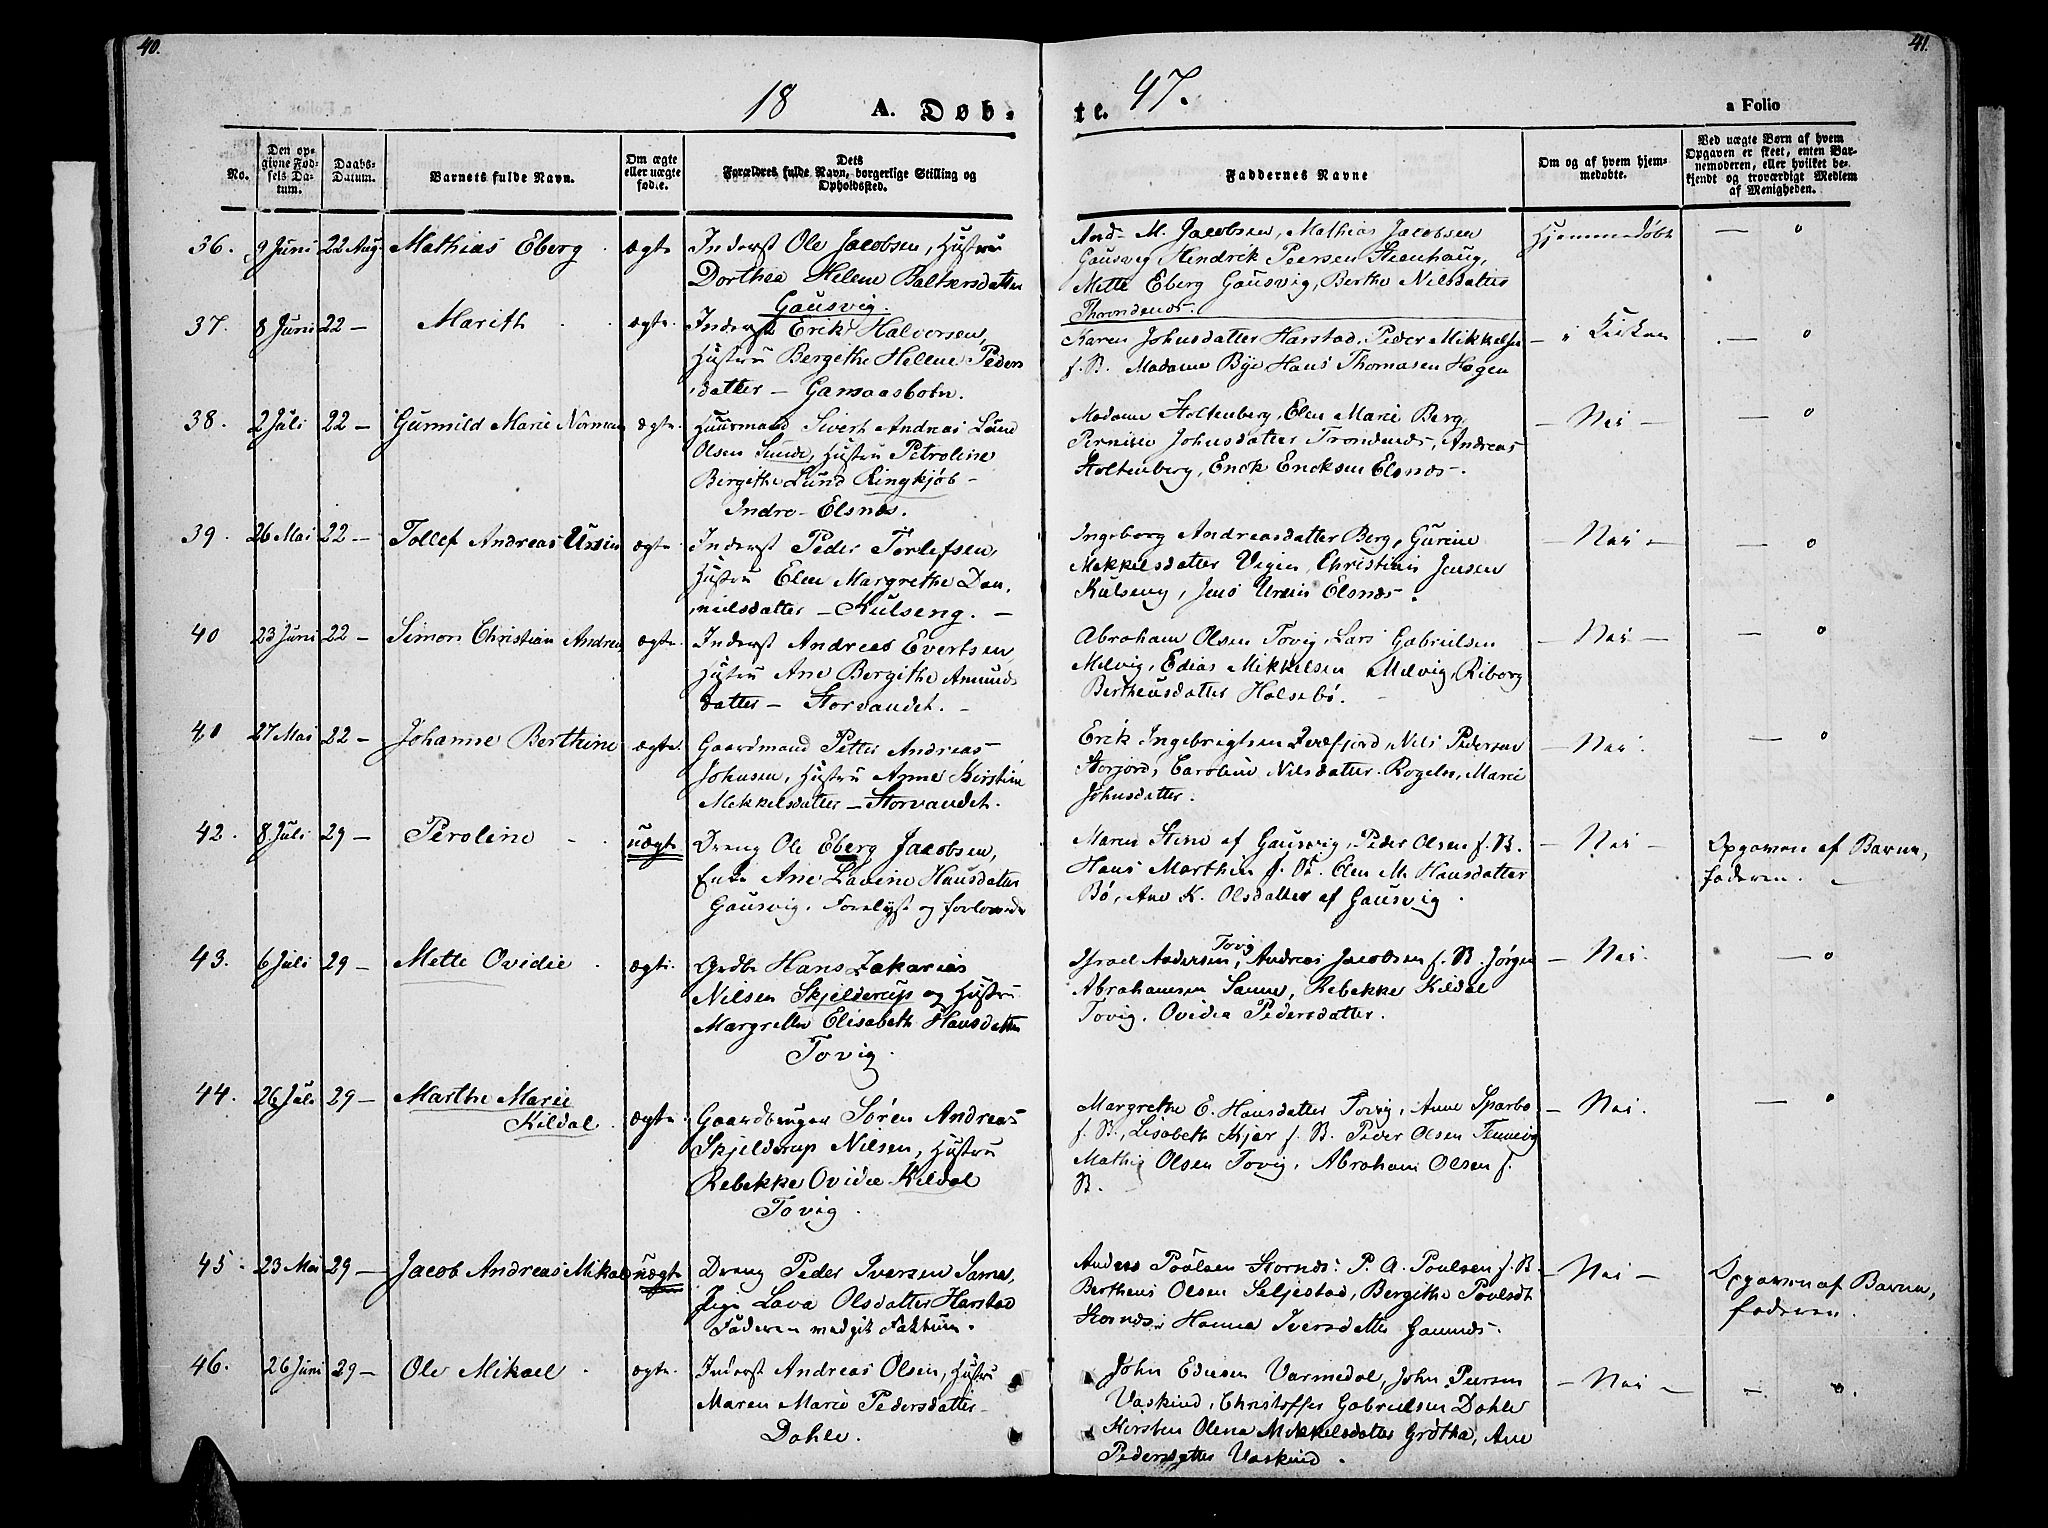 40.
41.
18
A. Døb-
te.
47.
a Folio
No.
Den op-
givne Fød-
sels Da-
tum.
Daabs-
Datum.
Barnets fulde Navn.
Om ægte
eller uægte
fødte.
Dets
Forældres fulde Navn, borgerlige Stilling og
Opholdssted.
Faddernes Navne
Om og af hvem hjem-
medøbte.
Ved uægte Børn af hvem
Opgaven er skeet, enten Bar-
nemoderen, eller hvilket be-
kjendt og troværdigt Medlem
af Menigheden.
36. 9 Juni 22 Aug Mathias Eberg ægte
Inderst Ole Jacobsen, Hustru
Dorthea Helene Baltsersdatter
Gausvig.
And. M. Jacobsen, Mathias Jacobsen
Gausvig Hendrik Peersen Steenhaug,
Mette Eberg Gausvig, Berthe Nilsdatter
Throndenæs.
Hjemmedøbt — o
37. 8 Juni 22 — Marith ægte.
Inderst Erik Halvorsen,
Hustru Bergithe Helene Peders
datter — Gansaasbotn.
Karen Johnsdatter Harstad, Peder Mikkelsen
f. B. Madame Bye Hans Thomasen Hagen
— i Kirken — o
38. 2 Juli 22 — Gunnild Marie Norman ægte.
Huusmand Sivert Andreas Lund
Olsen Sunde, Hustru Petroline
Bergithe Lund Ringkjøb —
Indre- Elsnæs.
Madame Holtenberg, Elen Marie Berg,
Pernille Johnsdatter Trondenæs, Andreas
Holtenberg, Erick Ericksen Elsnæs.
— Nei — — o
39. 26 Mai 22 — Tollef Andreas Ursin ægte.
Inderst Peder Torlefsen,
Hustru Elen Margrethe Dan,
nielsdatter — Kulseng. —
Ingeborg Andreasdatter Berg, Gurine
Mekkelsdatter Vigen, Christian Jensen
Kulseng, Jens Ursin Elsnæs.
— Nei — — o
40 23 Juni 22 — Simon Christian Andreas ægte.
Inderst Andreas Evertsen,
Hustru Ane Bergithe Amunds
datter — Storvandet. —
Abraham Olsen Tovig, Lars Gabrielsen
Melvig, Edias Mikkelsen Melvig, Riborg
Bertheusdatter Halsebø. —
— Nei — — o
41 27 Mai 22 — Johanne Berthine ægte.
Gaardmand Petter Andreas
Johnsen, Hustru Anne Kirstine
Mekkelsdatter — Storvandet.
Erik Ingebrigtsen Nils Pedersen
Storjord, Caroline Nilsdatter Rogeln, Marie
Johnsdatter.
— Nei. — o
42. 8 Juli 29 — Peroline uægte
Dreng Ole Eberg Jacobsen,
Enke Ane Lavine Hansdatter
Gausvig. Forelyst og forlovede
Maren Stine af Gausvig, Peder Olsen f. B.
Hans Marthin f. B. Elen M. Hansdatter
Bø, Ane K. Olsdatter af Gausvig.
— Nei — Opgaven af Barne,
faderen.
43. 6 Juli 29 — Mette Ovidie ægte.
Grdbr Hans Zakarias
Nilsen Skjelderup og Hustru
Margrethe Elisabeth Hansdatter
Tovig.
Israel Andersen, Tovig Andreas Jacobsen f. B. Jørgen
Abrahamsen Sanne, Rebekke Kildal
Tovig, Ovidia Pedersdatter.
— Nei. — o
44. 26 Juli 29 — Marthe Marie
Kildal. ægte.
Gaardbruger Søren Andreas
Skjelderup Nilsen, Hustru
Rebekke Ovidie Kildal
Tovig.
Margrethe E. Hansdatter Tovig, Anne Sparbo
f. B., Lisabeth Kjær f. B. Peder Olsen Tennevig
Mathis Olsen Tovig, Abraham Olsen f.
B.
— Nei. — o
45. 23 Mai 29 — Jacob Andreas Mikal uægte
Dreng Peder Iversen Sama,
Pige Lava Olsdatter Harstad
Faderen medgik Faktum.
Anders Poulsen Stornæs: P. A. Poulsen f. B.
Bertheus Olsen Seljestad, Bergithe Poulsdt
Stornæs, Hanna Iversdatter
— Nei — Opgaven af Barne,
faderen.
46. 26 Juni 29 — Ole Mikael ægte.
Inderst Andreas Olsen, Hustru
Maren Marie Pedersdatter
Dahle.
John Ediesen Varmedal, John Peersen
Vaskind, Christoffer Gabrielsen Dahle
Kirsten Olena Mekkelsdatter Grøtha, Ane
Pedersdatter Vaskind.
— Nei — — o.